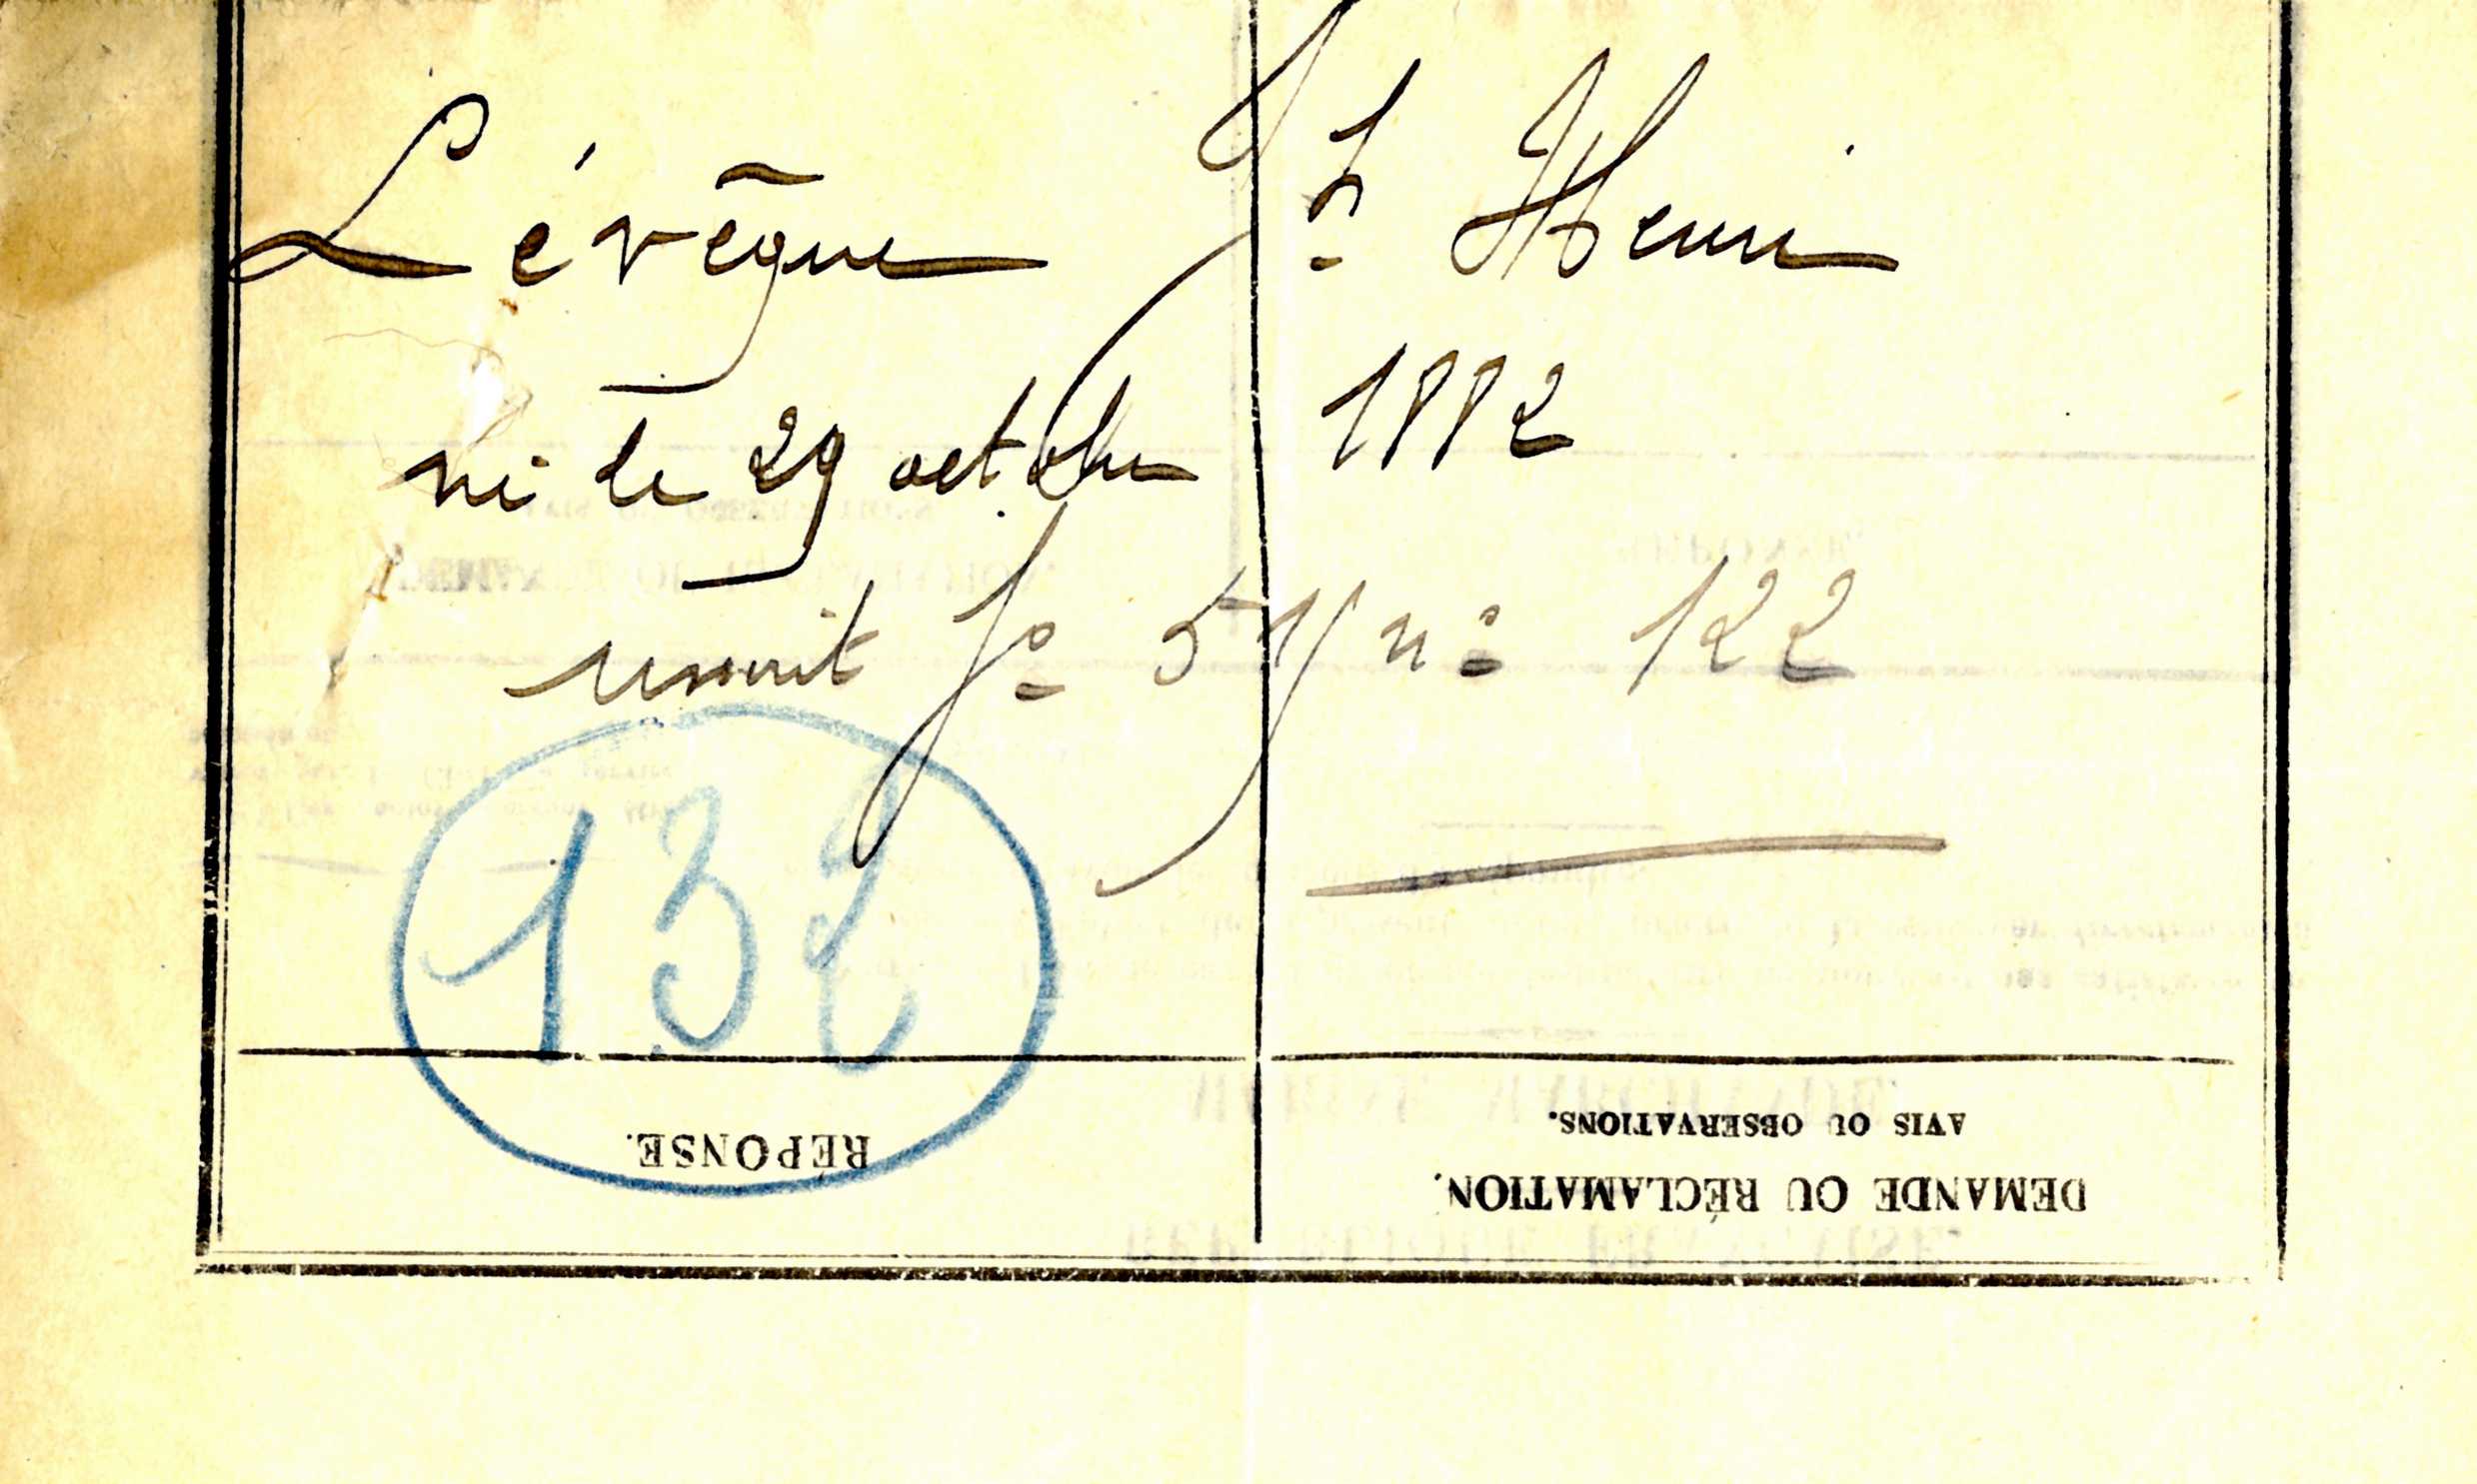 Lévêque Jh Henri
né le 29 octobre 1882
inscrit f° 57 n° 122
132
RÉPONSE.
AVIS OU OBSERVATIONS.
DEMANDE OU RÉCLAMATION.